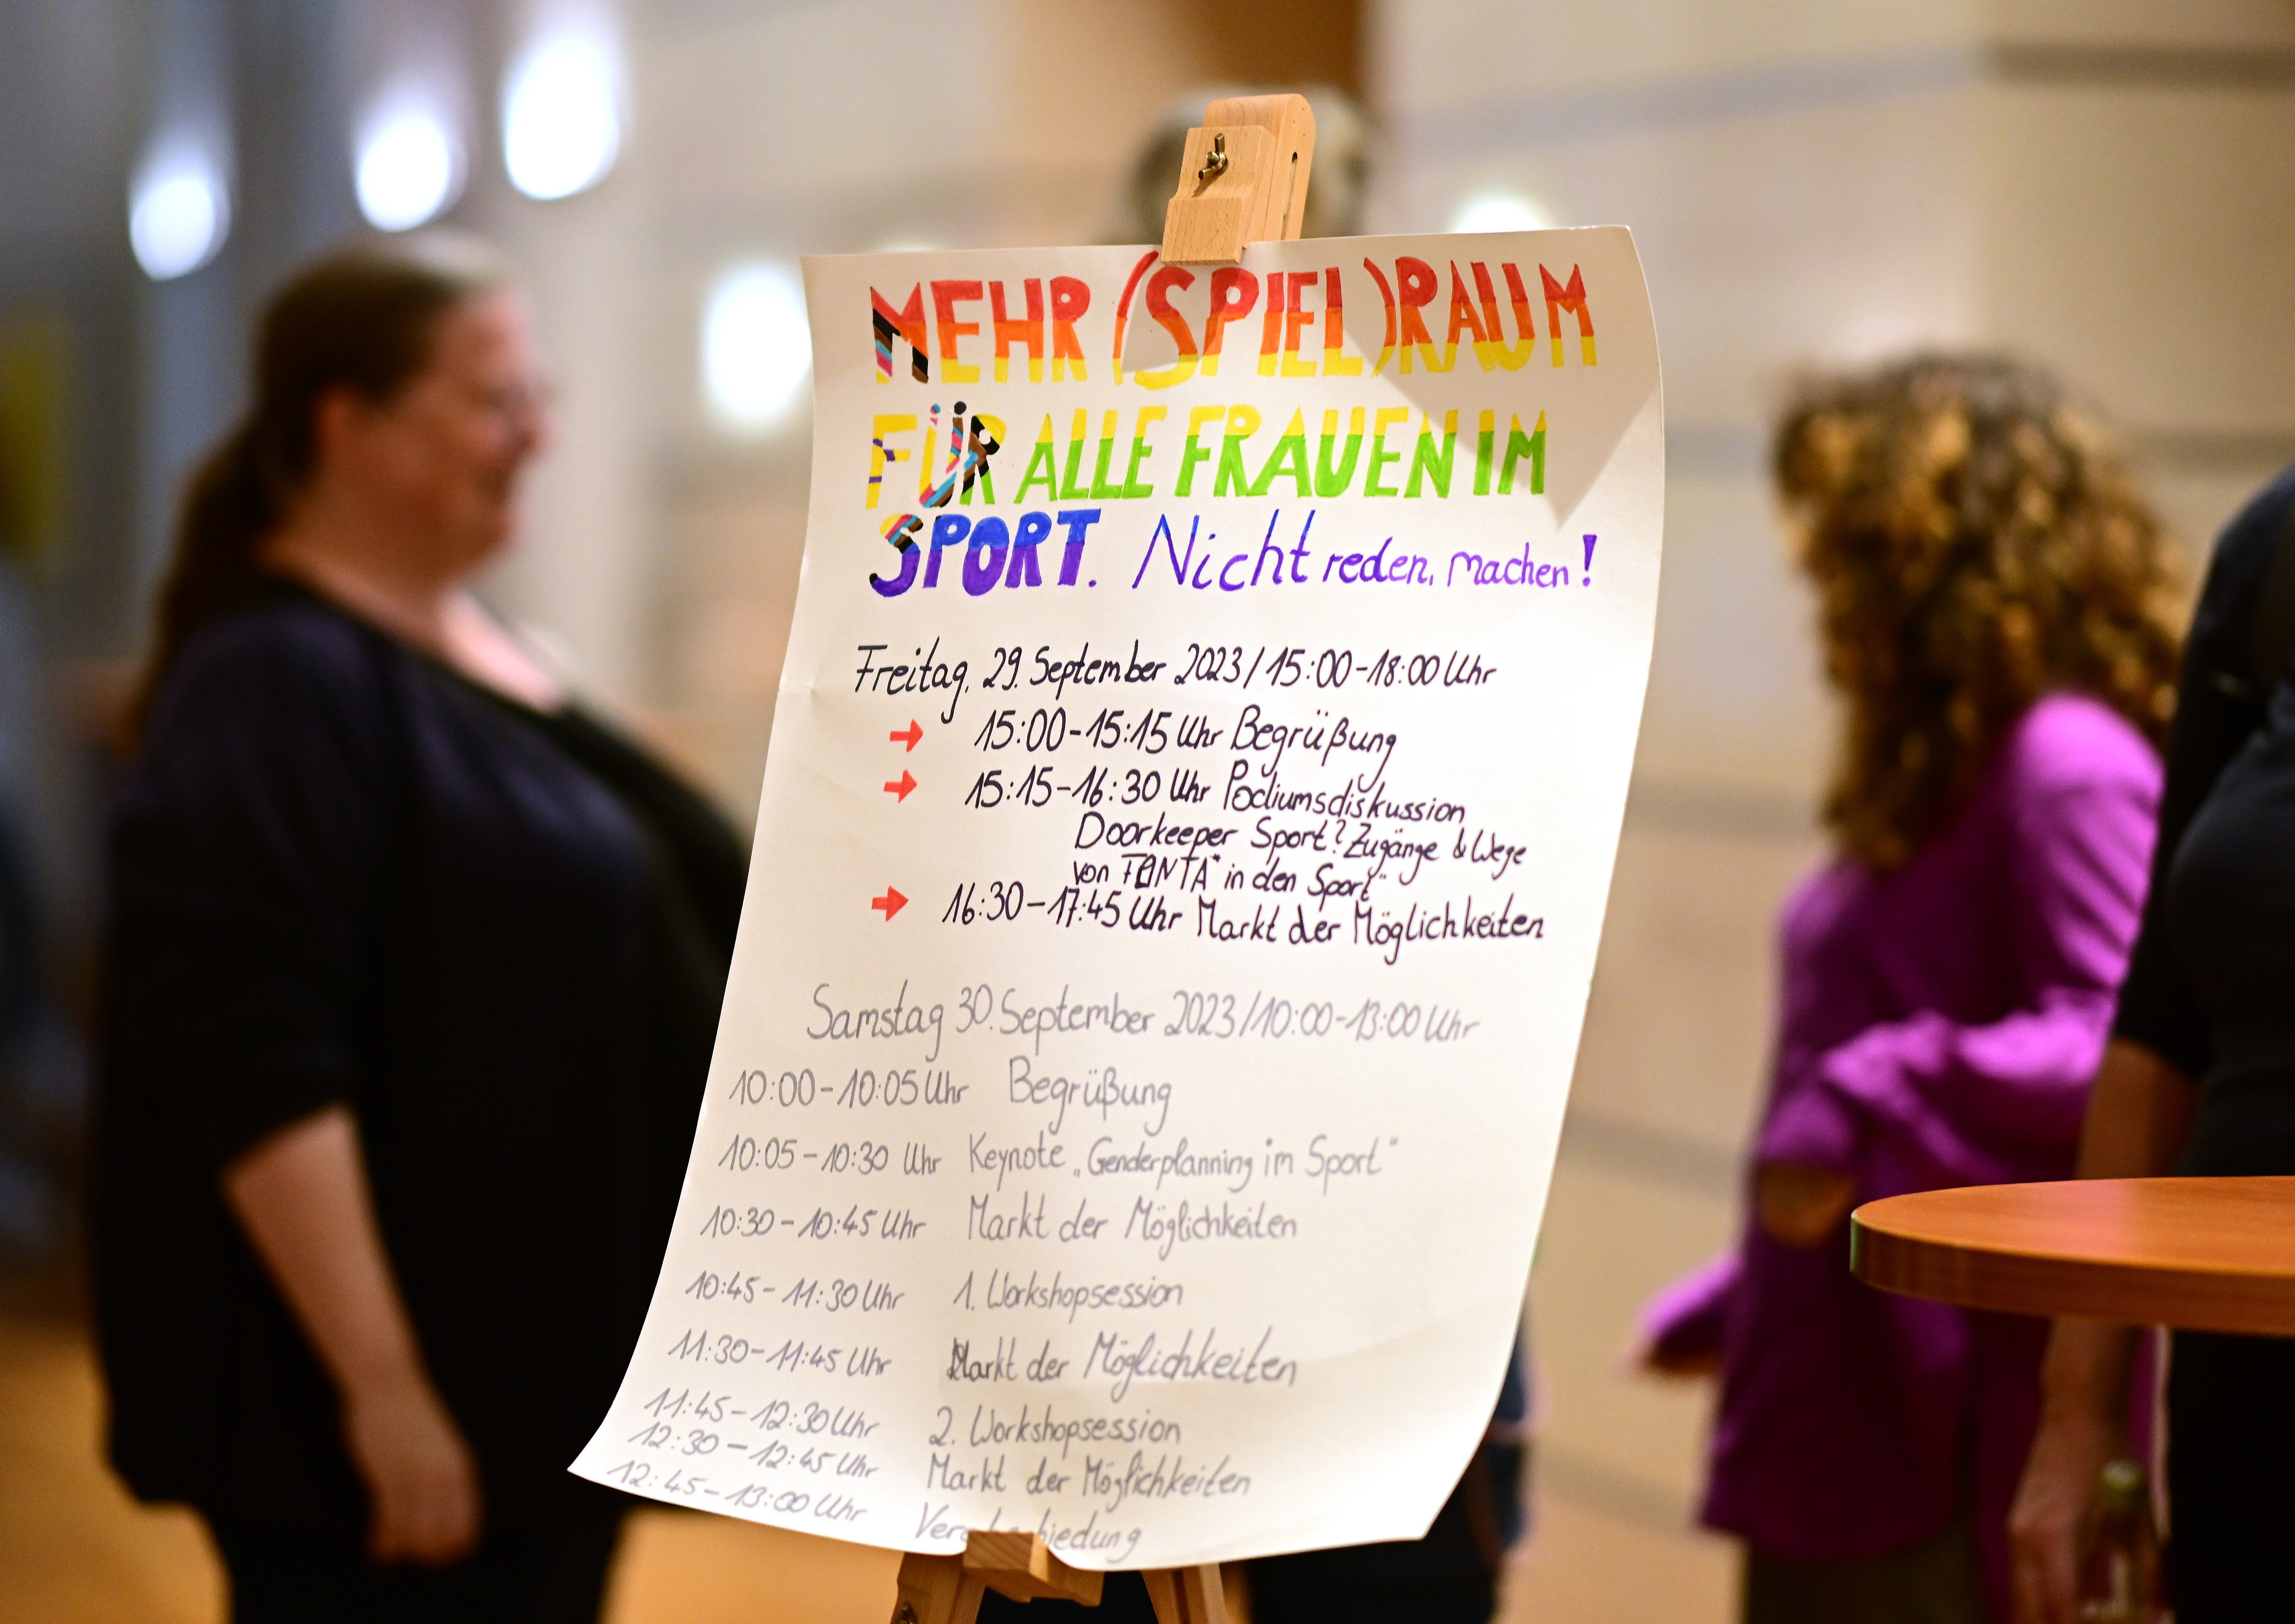 MEHR (SPIEL)RAUM
FÜR ALLE FRAUEN IM
SPORT. Nicht reden, machen!
Freitag, 29. September 2023/15:00-18:00 Uhr
→ 15:00-15:15 Uhr Begrüßung
→ 15:15-16:30 Uhr Podiumsdiskussion
Doorkeeper Sport? Zugänge & Wege
von FINTA* in den Sport"
→ 16:30-17:45 Uhr Markt der Möglichkeiten
Samstag 30. September 2023/10:00-13:00 Uhr
10:00-10:05 Uhr Begrüßung
10:05-10:30 Uhr Keynote „Genderplanning im Sport"
10:30-10:45 Uhr Markt der Möglichkeiten
10:45-11:30 Uhr 1. Workshopsession
11:30-11:45 Uhr Markt der Möglichkeiten
11:45-12:30 Uhr 2. Workshopsession
12:30-12:45 Uhr Markt der Möglichkeiten
12:45-13:00 Uhr Verabschiedung